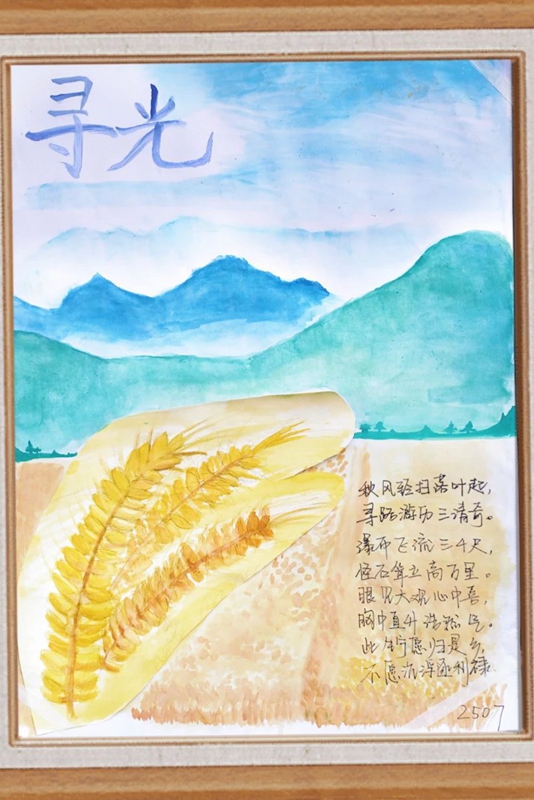 寻光
秋风轻扫落叶起，
寻踪游历三清奇。
瀑布飞流三千尺，
怪石耸立高万里。
眼见大观心中喜，
胸中直升浩然气。
此生宁愿归是乡，
不愿沉浮逐利禄
2507